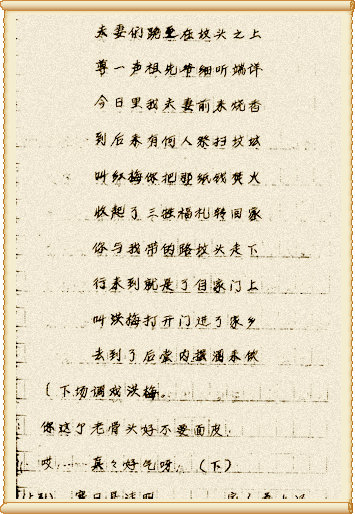 夫妻们跪墓在坟头之上
尊一声祖先灵细听端详
今日里我夫妻前来烧香
到后来有何人祭扫坟坟
叫红梅你把那纸钱焚火
收起了三牲福礼转回家
你与我带的路坟头走下
行来到就是了自家门上
叫洪梅打开门进了家乡
去到了后堂内摆酒来做
(下场调戏洪梅。
你这个老骨头好不要面皮.
哎……真々好气呀.(下)